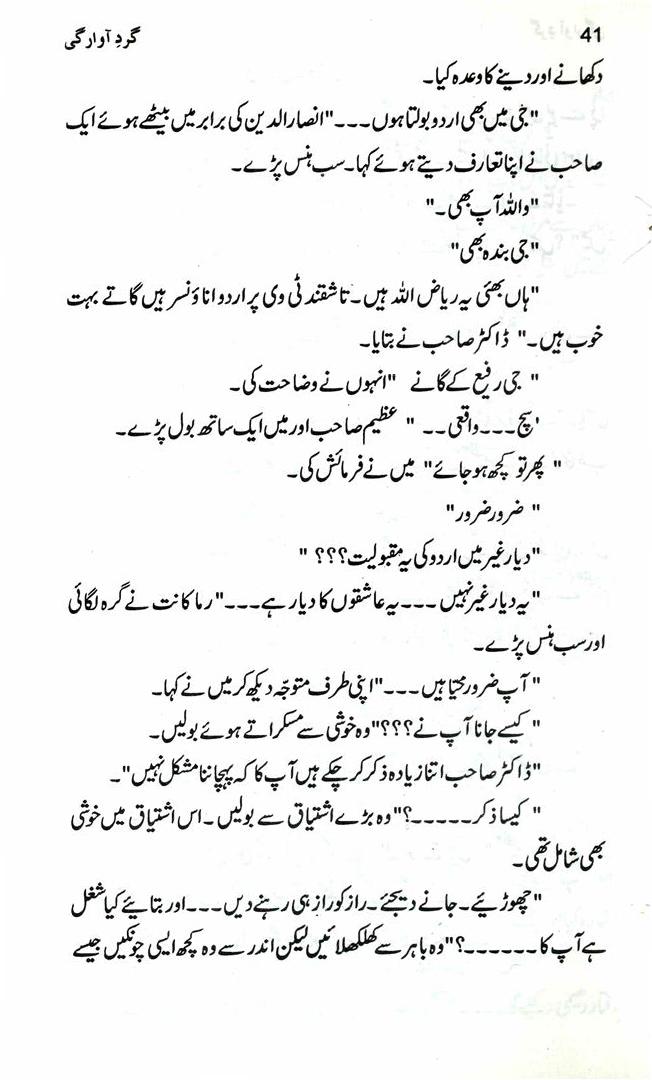 41
گردِ آوارگی
دکھانے اور دینے کا وعدہ کیا۔
"جی میں بھی اردو بولتا ہوں۔۔۔" انصار الدین کی برابر میں بیٹھے ہوئے ایک
صاحب نے اپنا تعارف دیتے ہوئے کہا۔ سب ہنس پڑے۔
"واللہ آپ بھی۔"
"جی بندہ بھی"
"ہاں بھئی یہ ریاض اللہ ہیں۔ تاشقند ٹی وی پر اردو اناؤنسر ہیں گاتے بہت
خوب ہیں۔" ڈاکٹر صاحب نے بتایا۔
" جی رفیع کے گانے "انہوں نے وضاحت کی۔
'سچ۔۔۔واقعی۔۔ " عظیم صاحب اور میں ایک ساتھ بول پڑے۔
" پھر تو کچھ ہو جائے" میں نے فرمائش کی۔
" ضرور ضرور"
"دیار غیر میں اردو کی یہ مقبولیت؟؟؟ "
"یہ دیار غیر نہیں ۔۔۔ یہ عاشقوں کا دیار ہے۔۔۔" رما کانت نے گرہ لگائی
اور سب ہنس پڑے۔
" آپ ضرور محیّا ہیں ۔۔۔" اپنی طرف متوجّہ دیکھ کر میں نے کہا۔
" کیسے جانا آپ نے؟؟؟" وہ خوشی سے مسکراتے ہوئے بولیں۔
"ڈاکٹر صاحب اتنا زیادہ ذکر کر چکے ہیں آپ کا کہ پہچاننا مشکل نہیں"۔
" کیسا ذکر۔۔۔۔۔؟" وہ بڑے اشتیاق سے بولیں۔ اس اشتیاق میں خوشی
بھی شامل تھی۔
"چھوڑیئے۔ جانے دیجئے۔ راز کو راز ہی رہنے دیں۔۔۔ اور بتایئے کیا شغل
ہے آپ کا۔۔۔۔۔۔؟" وہ باہر سے کھلکھلائیں لیکن اندر سے وہ کچھ ایسی چونکیں جیسے